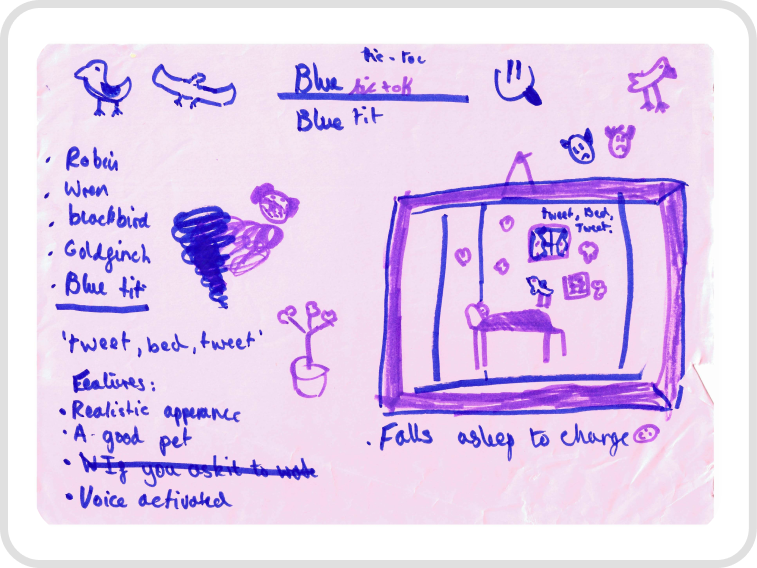 tic-toc
Blue tictok
Blue tit
• Robin
• Wren
• blackbird
• Goldfinch
• Blue tit
'tweet, bed, tweet'
Features:
• Realistic apperance
• A good pet
• If you ask it to
• Voice activated
tweet, Bed,
Tweet.
. Falls asleep to charge